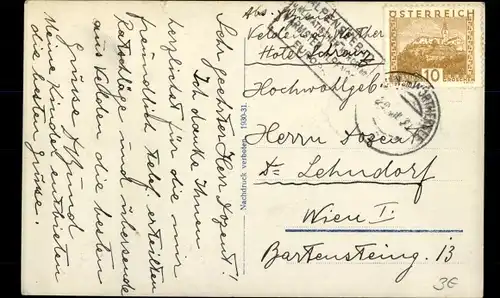 Sehr geehrter Herr Dozent!
Ich danke Ihnen
herzlichst für die mir
freundlich telef. erteilten
Ratschläge und übersende
aus Velden die besten
Grüsse
Meine Kinder entbieten
die besten Grüsse.
Nachdruck verboten. 1930-31.
Abs.
Velden am Wörther
Hotel
ÖSTERREICH
10
Hochwohlgeb.
Herrn Dozent
Dr Lehndorf
Wien I.
Bartensteing. 13
3€